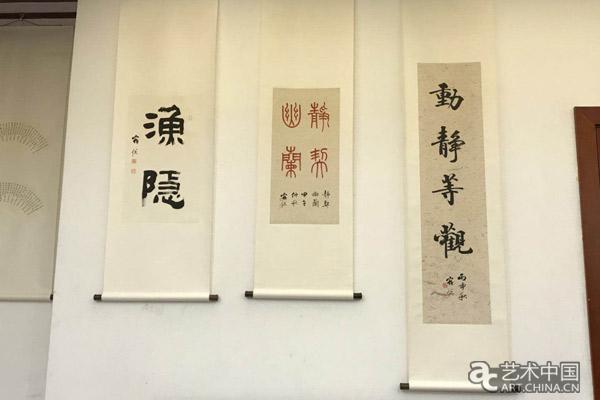 漁隱
靜契
幽蘭
靜契
幽蘭
甲午
仲秋
動靜等觀
丙申秋
艺术中国
ART.CHINA.CN